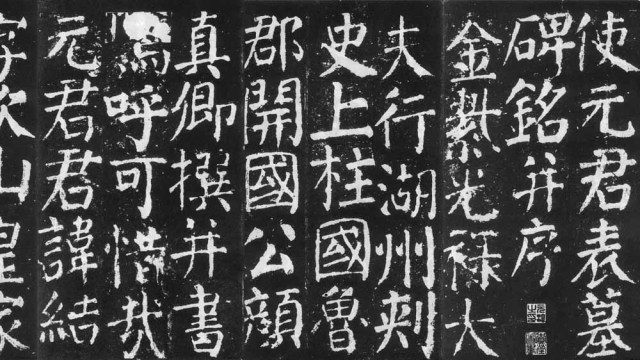 使元君表墓
碑銘并序
金紫光祿大
夫行湖州刺
史上柱國魯
郡開國公顏
真卿撰并書
嗚呼可惜哉
元君君諱結
字次山皇家